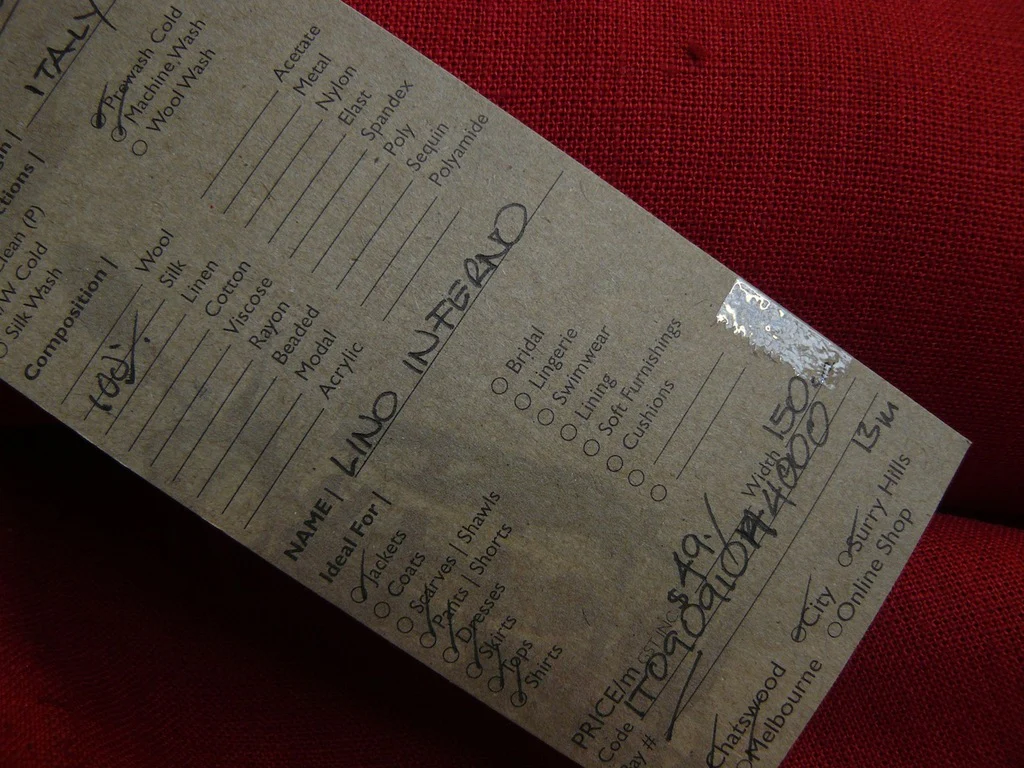 ITALY
Prewash Cold
Machine Wash
Wool Wash
W Cold
Silk Wash
Composition |
Wool
Silk
100% Linen
Cotton
Viscose
Rayon
Beaded
Modal
Acrylic
Acetate
Metal
Nylon
Elast
Spandex
Poly
Sequin
Polyamide
NAME | LINO INFERNO
Ideal For |
Jackets
Coats
Scarves | Shawls
Pants | Shorts
Dresses
Skirts
Tops
Shirts
Bridal
Lingerie
Swimwear
Lining
Soft Furnishings
Cushions
PRICE/m $49. Width 150
Code
13m
Chatswood
City
Surry Hills
Melbourne
Online Shop